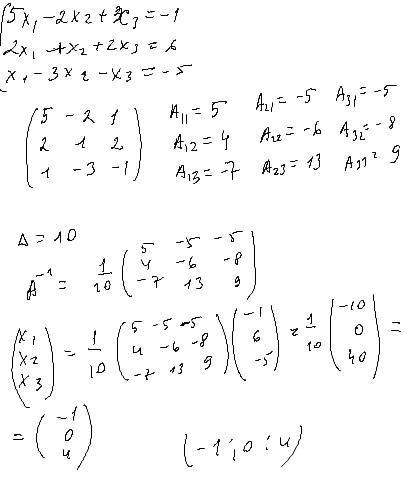 5x₁ - 2x₂ + x₃ = -1
2x₁ + x₂ + 2x₃ = 6
x₁ - 3x₂ - x₃ = -5
5 -2 1
2 1 2
1 -3 -1
A₁₁ = 5 A₂₁ = -5 A₃₁ = -5
A₁₂ = 4 A₂₂ = -6 A₃₂ = -8
A₁₃ = -7 A₂₃ = 13 A₃₃ = 9
Δ = 10
A⁻¹ = 1/10 (5 -5 -5
4 -6 -8
-7 13 9)
(x₁ x₂ x₃) = 1/10 (5 -5 -5
4 -6 -8
-7 13 9) (-1 6 -5) = 1/10 (-10 0 40) =
= (-1 0 4) (-1; 0; 4)